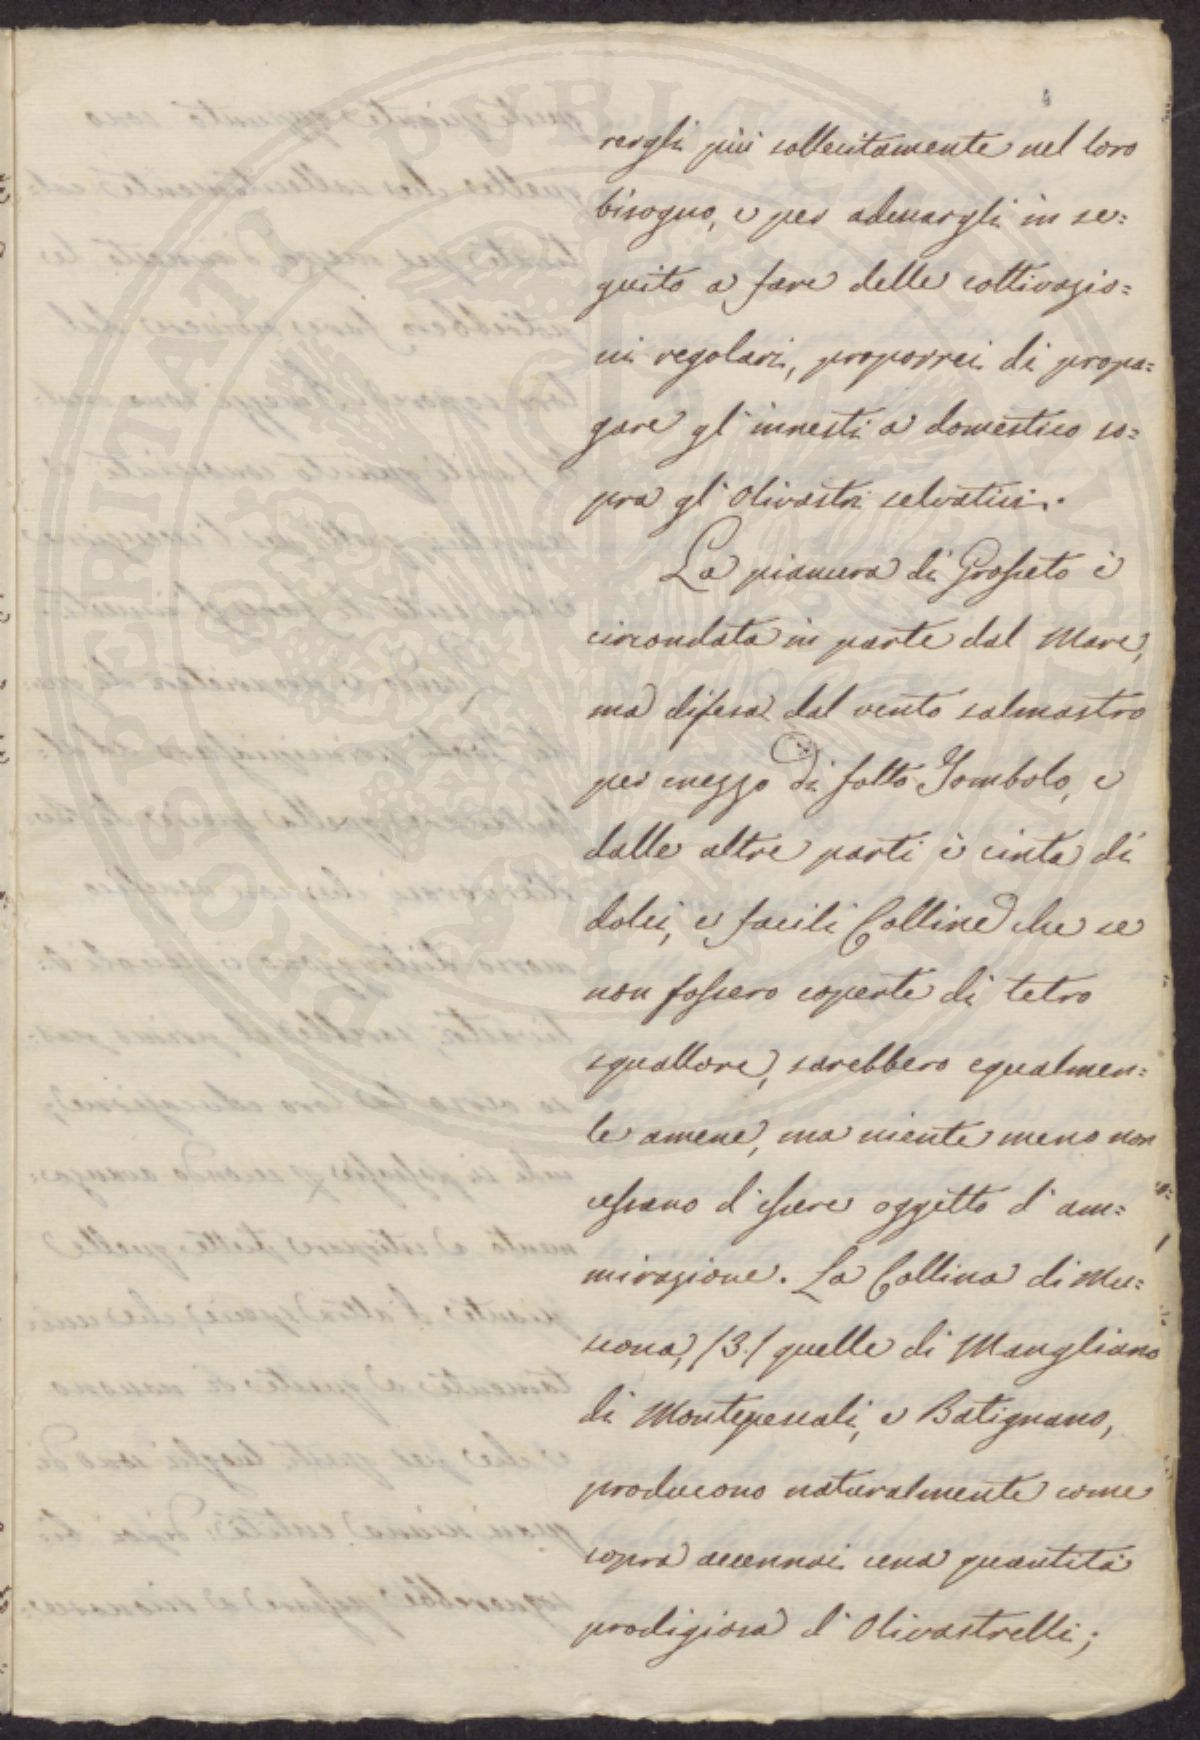 4
rergli più sollecitamente nel loro
bisogno, e per adescargli in se=
guito a fare delle coltivazio=
ni regolari, proporrei di propa=
gare gl'innesti a domestico so=
pra gl'Olivastri selvatici.
La pianura di Grosseto è
circondata in parte dal Mare,
ma difesa dal vento salmastro
per mezzo di folto Tombolo, e
dalle altre parti è cinta di
dolci, e facili Colline che se
non fossero coperte di tetro
squallore, sarebbero egualmen=
te amene, ma niente meno non
cessano d'essere oggetto d'am=
mirazione. La Collina di Mu=
sciona, /3./ quelle di Mangliano
di Montepescali, e Batignano,
producono naturalmente come
sopra accennai una quantità
prodigiosa d'Olivastrelli;